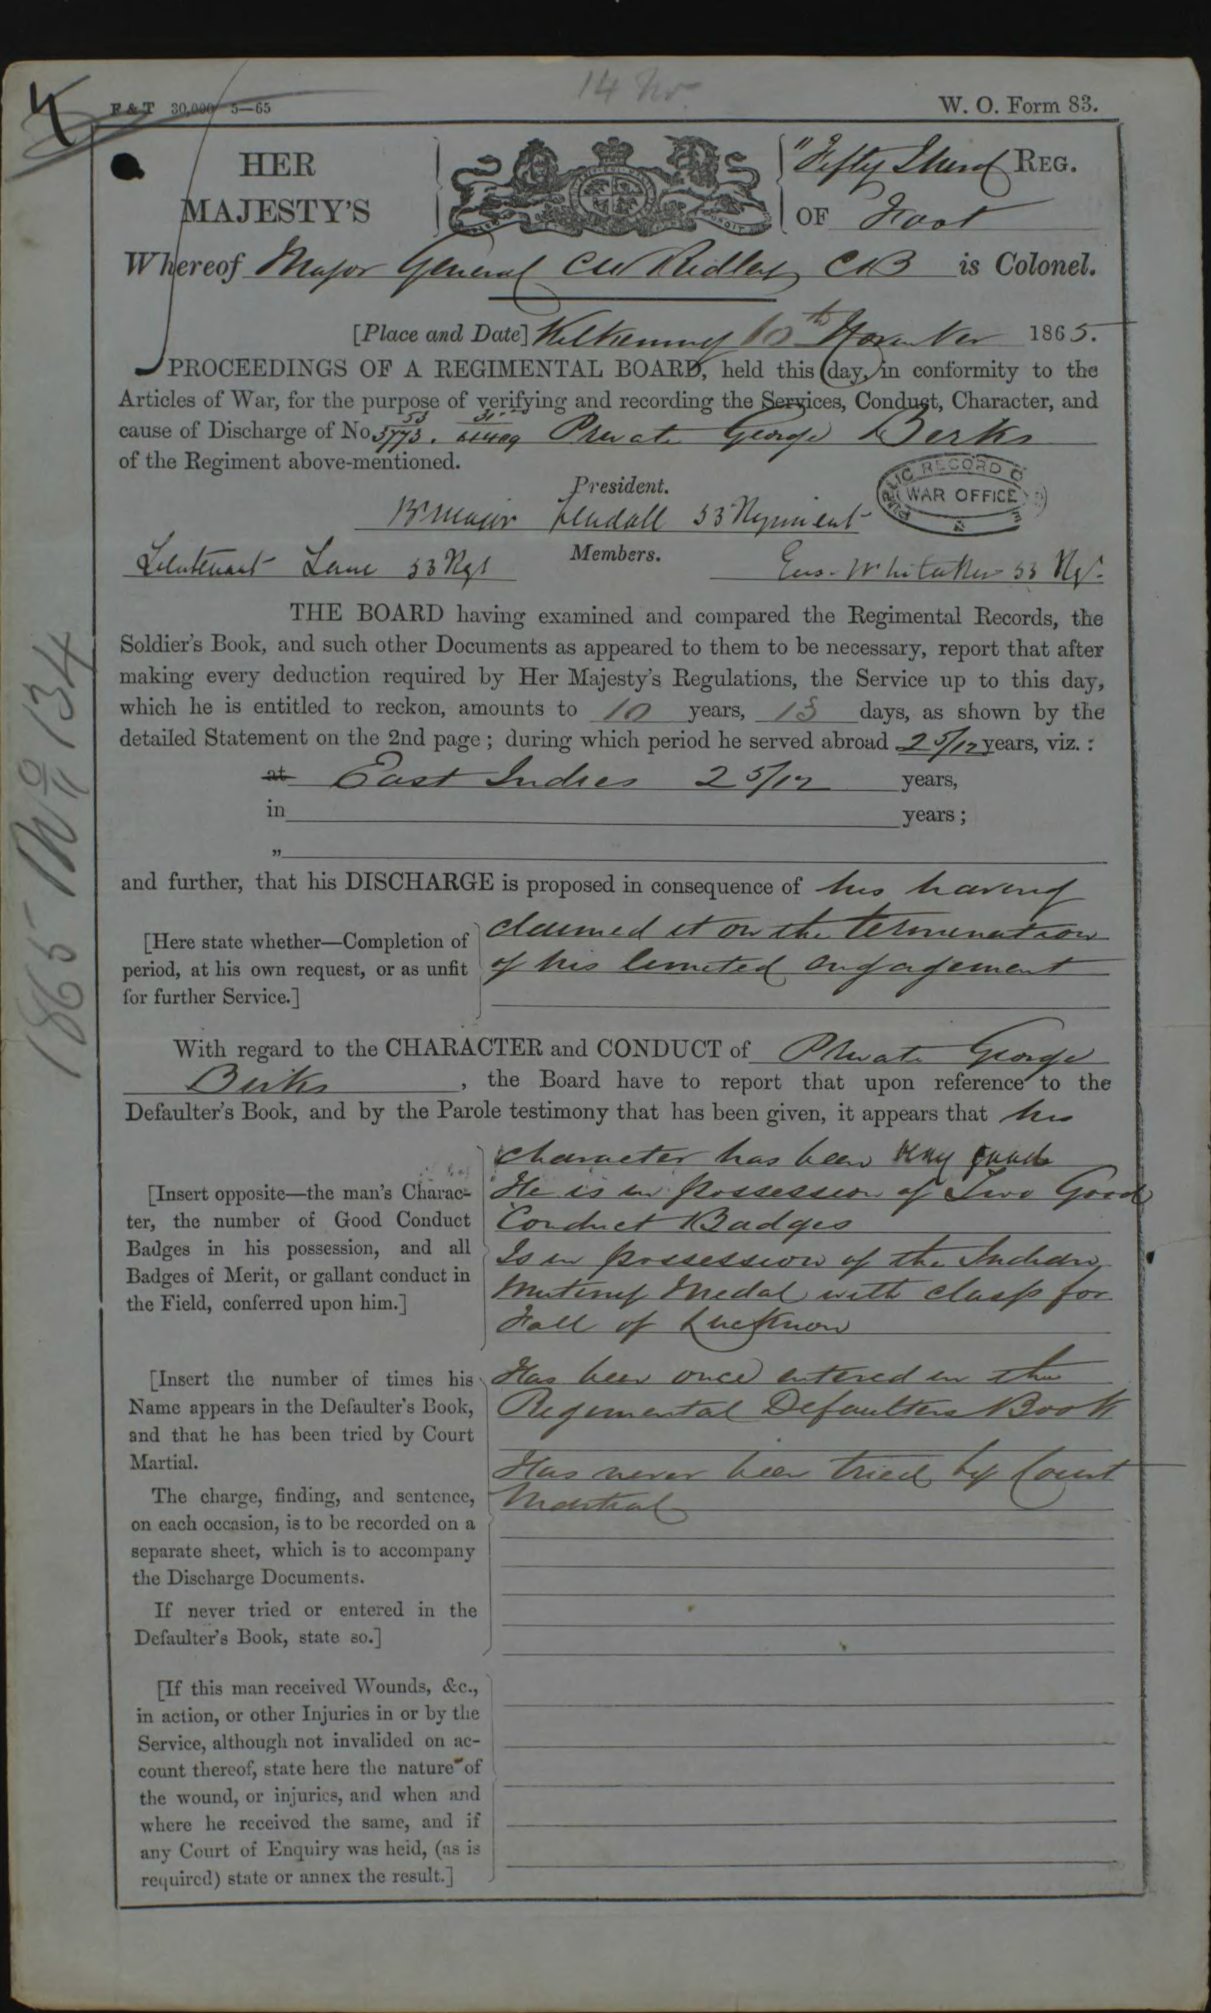 14
F & T 30,000 5—65
W. O. Form 83.
HER MAJESTY'S
"Fifty Third REG.
OF Foot
Whereof Major General C W Ridley CB is Colonel.
[Place and Date] Kilkenny 10th November 1865.
PROCEEDINGS OF A REGIMENTAL BOARD, held this day, in conformity to the
Articles of War, for the purpose of verifying and recording the Services, Conduct, Character, and
cause of Discharge of No. Private George Berks
of the Regiment above-mentioned.
President.
Bt Major Kendall 53 Regiment
PUBLIC RECORD O
WAR OFFICE
Lieutenant Lane 53 Regt
Members.
Ens. Whitaker 53 Rgt.
THE BOARD having examined and compared the Regimental Records, the
Soldier's Book, and such other Documents as appeared to them to be necessary, report that after
making every deduction required by Her Majesty's Regulations, the Service up to this day,
which he is entitled to reckon, amounts to 10 years, 13 days, as shown by the
detailed Statement on the 2nd page; during which period he served abroad 2 5/12 years, viz.:
at East Indies 2 5/12 years,
in years;
„
and further, that his DISCHARGE is proposed in consequence of his having
[Here state whether—Completion of
period, at his own request, or as unfit
for further Service.]
claimed it on the termination
of his limited engagement
With regard to the CHARACTER and CONDUCT of Private George
Berks, the Board have to report that upon reference to the
Defaulter's Book, and by the Parole testimony that has been given, it appears that his
character has been very good
[Insert opposite—the man's Charac-
ter, the number of Good Conduct
Badges in his possession, and all
Badges of Merit, or gallant conduct in
the Field, conferred upon him.]
He is in possession of Two Good
Conduct Badges
Is in possession of the Indian
Mutiny Medal with clasp for
Fall of Lucknow
[Insert the number of times his
Name appears in the Defaulter's Book,
and that he has been tried by Court
Martial.
The charge, finding, and sentence,
on each occasion, is to be recorded on a
separate sheet, which is to accompany
the Discharge Documents.
If never tried or entered in the
Defaulter's Book, state so.]
Has been once entered in the
Regimental Defaulters Book
Has never been tried by Court
Martial
[If this man received Wounds, &c.,
in action, or other Injuries in or by the
Service, although not invalided on ac-
count thereof, state here the nature of
the wound, or injuries, and when and
where he received the same, and if
any Court of Enquiry was held, (as is
required) state or annex the result.]